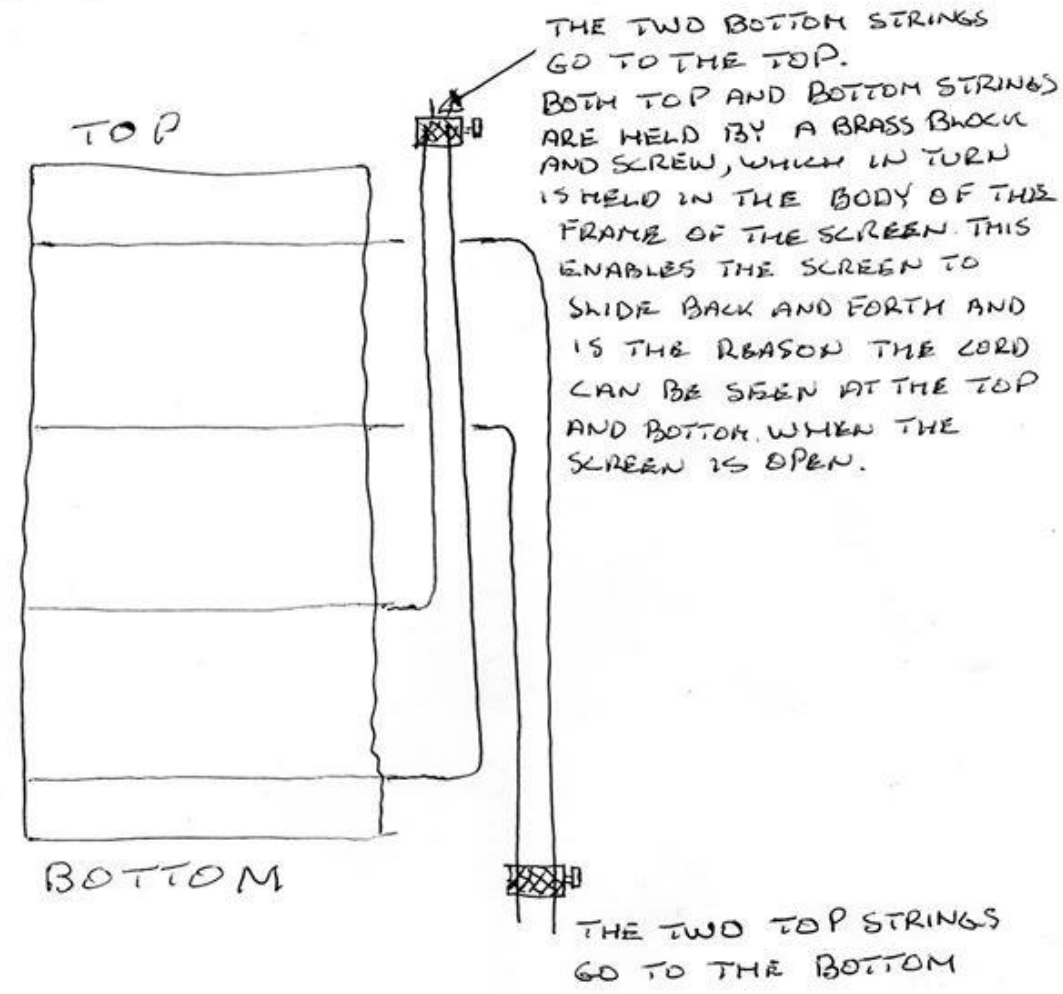 THE TWO BOTTOM STRINGS
GO TO THE TOP.
BOTH TOP AND BOTTOM STRINGS
ARE HELD BY A BRASS BLOCK
AND SCREW, WHICH IN TURN
IS HELD IN THE BODY OF THE
FRAME OF THE SCREEN. THIS
ENABLES THE SCREEN TO
SLIDE BACK AND FORTH AND
IS THE REASON THE CORD
CAN BE SEEN AT THE TOP
AND BOTTOM. WHEN THE
SCREEN IS OPEN.
TOP
BOTTOM
THE TWO TOP STRINGS
GO TO THE BOTTOM